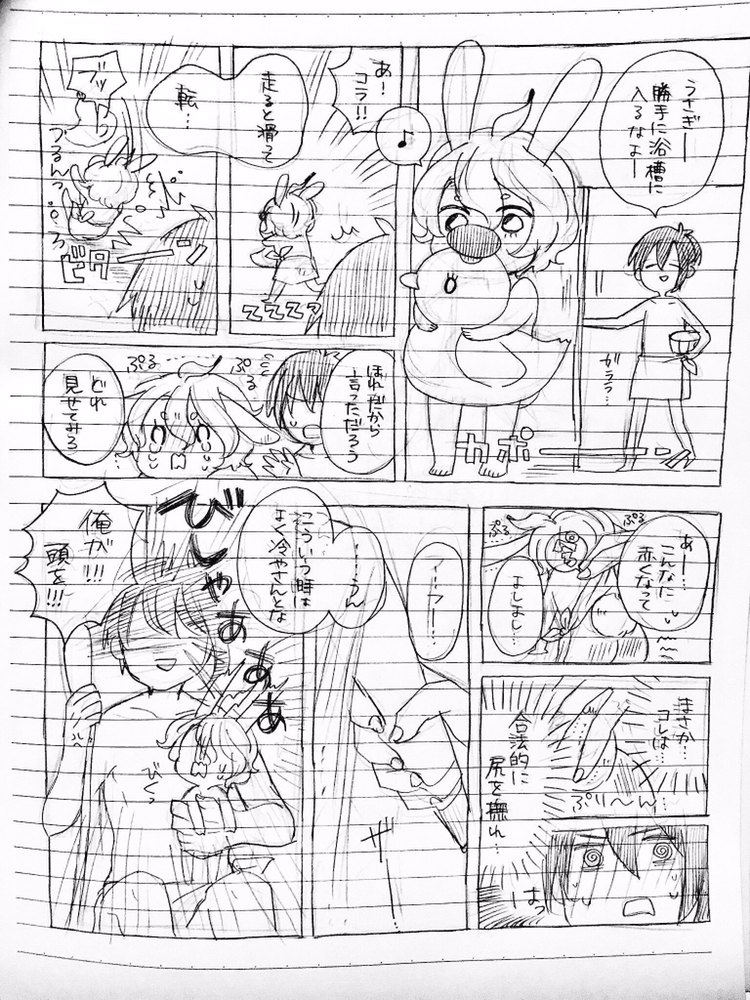 うさぎー
勝手に浴槽に
入るなよー
ガララ…
♪
カポーーン
あ!
コラ!!
走ると滑って
転…
ブッ
づるんっ
ビターーン
ほれだから
言っただろう
ぷる
ぷる
どれ
見せてみろ
あー…
こんなに
赤くなって
よしよし…
ぷる
ぷる
まさか…
コレは…
合法的に
尻を撫れ…
ぷり〜ん…
はっ
……うん
こういう時は
よく冷やさんとな
ザー
びしゃああああ
俺が!!!
頭を!!!
びくっ